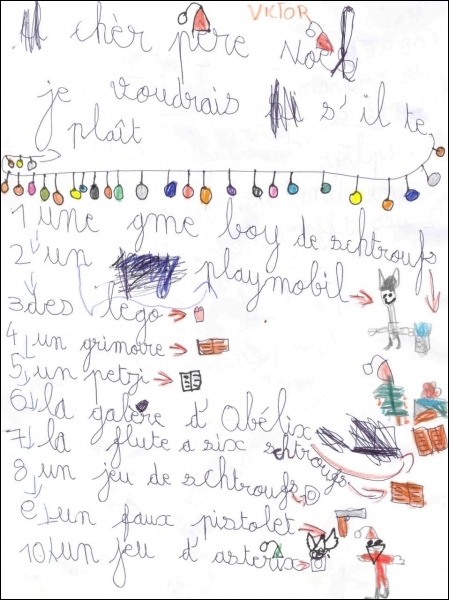 VICTOR
chèr père Noël
je voudrais s'il te
plaît
1 une gme boy de schtroufs
2 un playmobil
3 des lego
4 un grimoire
5 un petzi
6 la galère d'Obélix
7 la flute a six schtroufs
8 un jeu de schtroufs
9 un faux pistolet
10 un jeu d'asterix